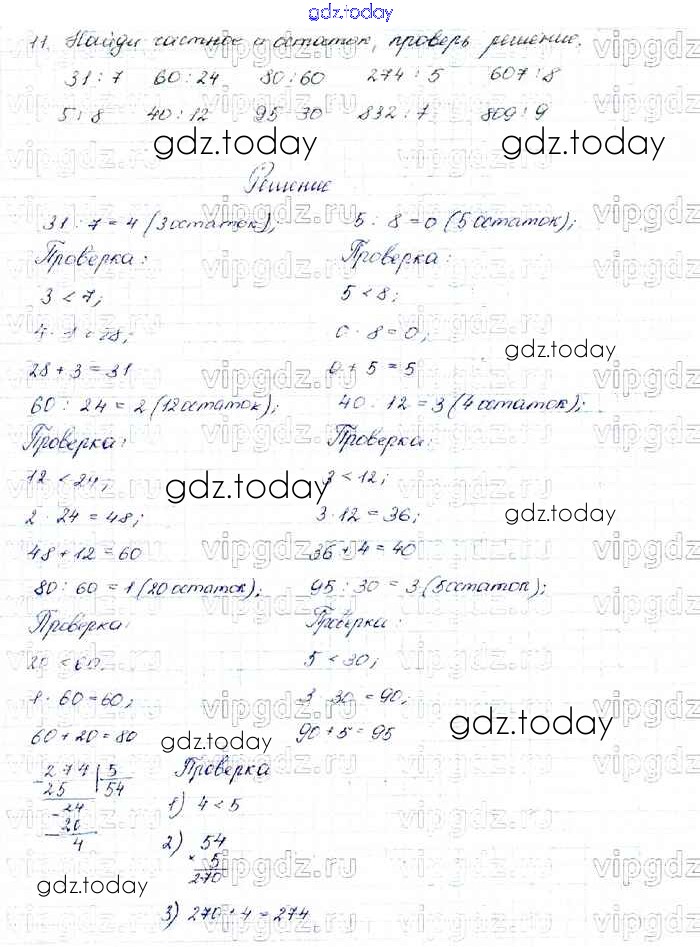 gdz.today
11. Найди частное и остаток, проверь решение.
31 : 7 60 : 24 80 : 60 274 : 5 607 : 8
5 : 8 40 : 12 95 30 832 : 7 809 : 9
gdz.today gdz.today
Решение
31 : 7 = 4 (3 остаток);
Проверка:
3 < 7;
4 · = 28;
28 + 3 = 31
60 : 24 = 2 (12 остаток);
Проверка:
12 < 24;
2 · 24 = 48;
48 + 12 = 60
80 : 60 = 1 (20 остаток);
Проверка:
20 < 60;
1 · 60 = 60;
60 + 20 = 80
5 : 8 = 0 (5 остаток);
Проверка:
5 < 8;
0 · 8 = 0;
gdz.today
0 + 5 = 5
40 · 12 = 3 (4 остаток);
Проверка:
< 12;
gdz.today
3 · 12 = 36;
gdz.today
36 + 4 = 40
95 : 30 = 3 (5 остаток);
Проверка:
5 < 30;
3 30 = 90;
gdz.today
90 + 5 = 95
gdz.today
274 5
25 54
24
20
4
Проверка
1) 4 < 5
2) 54
× 5
270
gdz.today
gdz.today
3) 270 + 4 = 274
vipgdz.ru